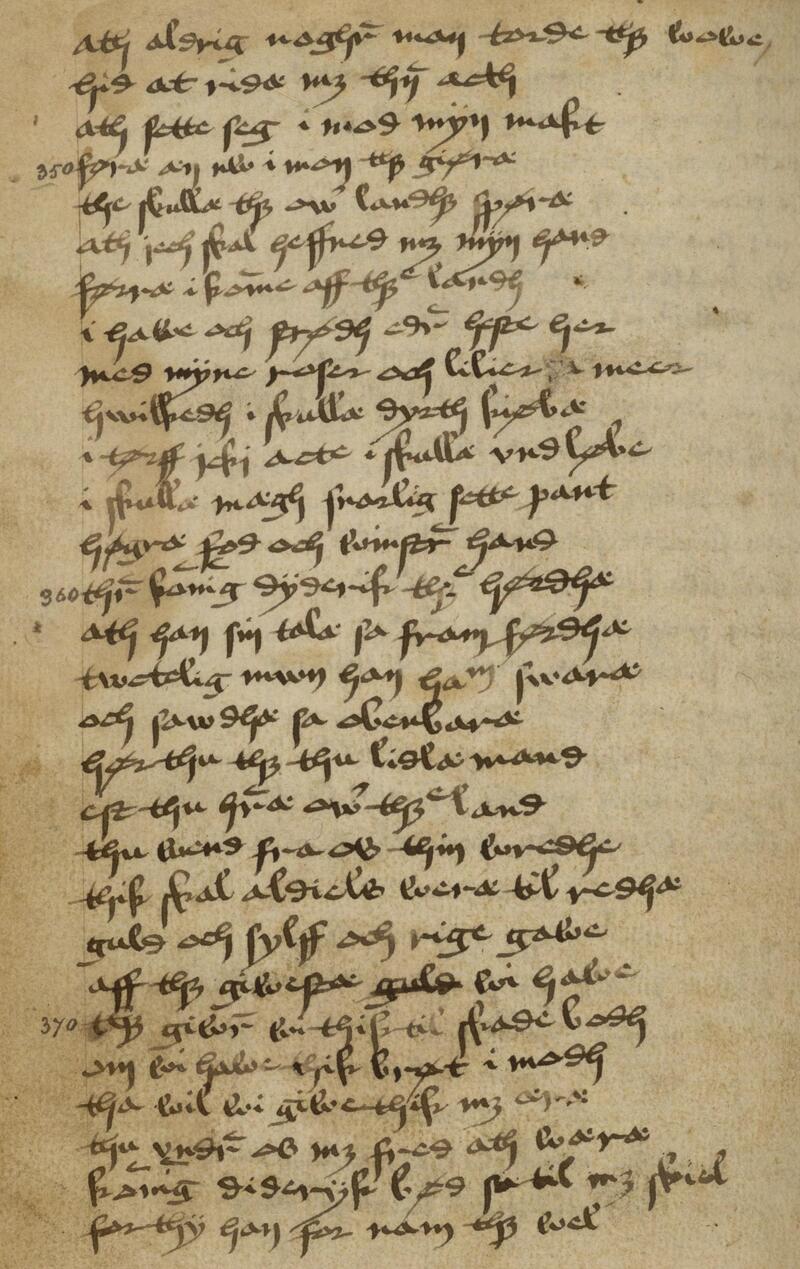 ath aldrig noghr̄ man torde thꝫ wowe,
hid at ridæ mꝫ thn̄ acth
ath sette seg i mod myn makt
350 føræ æn nw i mon thꝫ giøræ
the skullæ thꝫ ow̓ landhꝫ spøræ
ath jech skal heffned mꝫ myn hand
førræ i kom̄e aff thꝫͤ landh
i hawe och strødh edr̄ heste her
med myne roser och lilier meer
hwilkedh i skullæ dyrth kiøbæ
i tørff jcki acte i skullæ vndløbe
i skullæ mægh snarlig sette pant
høgræ fod och winstr̄ hand
360 thr̄ kōnīg dyderik thꝫͤ hørdhæ
ath han sin talæ sa fram førdhæ
twctelig mwn han hām swaræ
och sawdhæ sa obenbaræ
hør thu thꝫ thu lidlæ mand
est thu hr̄æ ow̓ thꝫͤ land
thu wend fra os thin wredhe
thik skal aldiels weræ til redhæ
guld och sylff och rige gawe
aff thꝫ giweste guld wi hawe
370 thꝫ giwr̄ wi thik til skade bodh
om wi hawe thik brøt i modh
tha wil wi giwe thik mꝫ æræ
thu vndr̄ os mꝫ fred ath wæræ
kōnīg dideryk bød sa til mꝫ skiel
forthy han for nam thꝫ wel